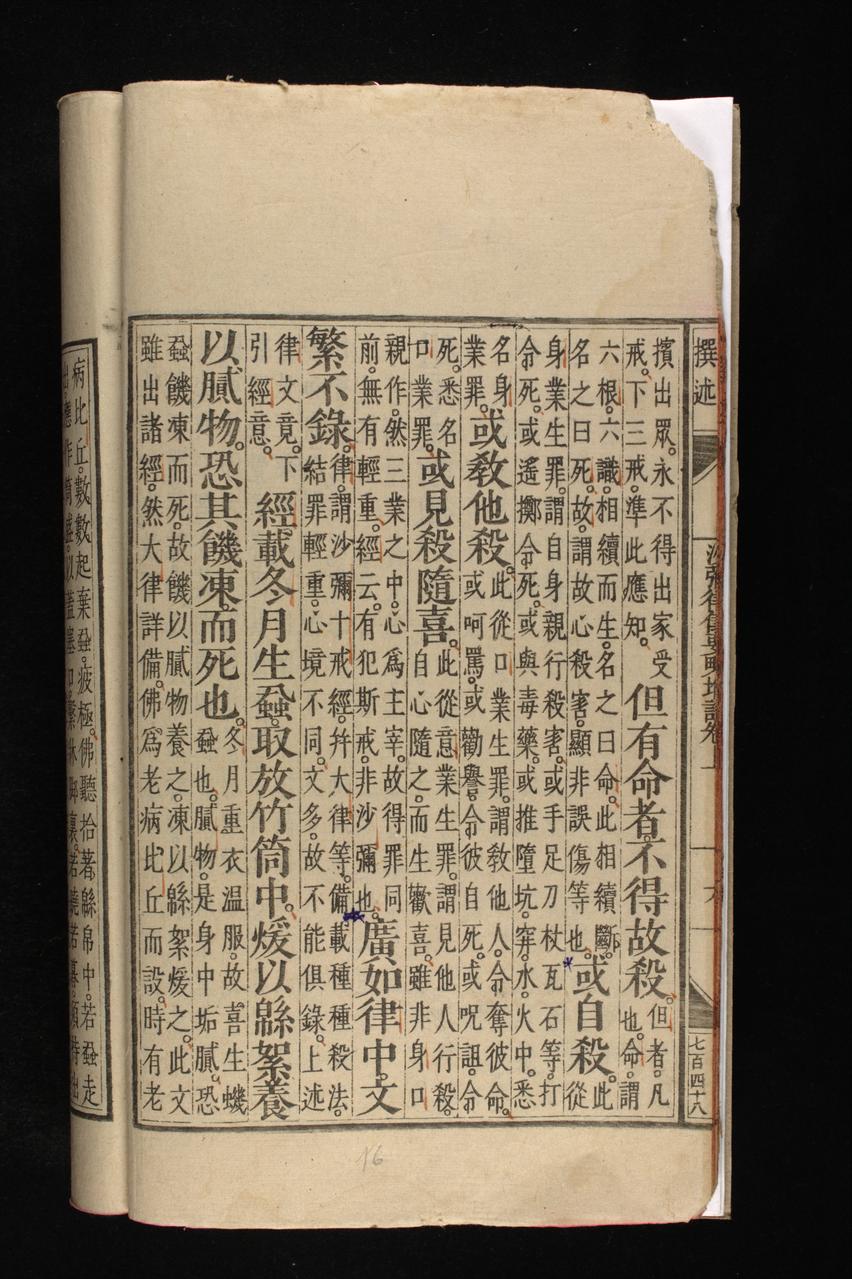 撰述
沙彌律儀要略增註卷上
六
七百四十八
擯出眾。永不得出家受
戒。下三戒。準此應知。
但有命者。不得故殺。
但者。凡
也。命。謂
六根。六識。相續而生。名之曰命。此相續斷。
名之曰死。故。謂故心殺害。顯非誤傷等也。
或自殺。
此
從
身業生罪。謂自身親行殺害。或手足刀杖瓦石等。打
令死。或遙擲令死。或與毒藥。或推墮坑穽。水火中。悉
名身
業罪。
或教他殺。
此從口業生罪。謂教他人。令奪彼命。
或呵罵。或勸譽。令彼自死。或呪詛令
死。悉名
口業罪。
或見殺隨喜。
此從意業生罪。謂見他人行殺。
自心隨之。而生歡喜。雖非身口
親作。然三業之中。心為主宰。故得罪同
前。無有輕重。經云。有犯斯戒。非沙彌也。
廣如律中文
繁不錄。
律。謂沙彌十戒經。幷大律等。備載種種殺法。
結罪輕重。心境不同。文多。故不能俱錄。上述
律文竟。下
引經意。
經載冬月生蝨。取放竹筒中。煖以緜絮養
以膩物。恐其饑凍而死也。
冬月重衣溫服。故喜生蟣
蝨也。膩物。是身中垢膩。恐
蝨饑凍而死。故饑以膩物養之。凍以緜絮煖之。此文
雖出諸經。然大律詳備。佛為老病比丘而設。時有老
病比丘。數數起棄蝨。疲極。佛聽拾著緜帛中。若蝨走
出。應作筒盛。以蓋塞口。繫牀脚裏。若曉若暮。
16